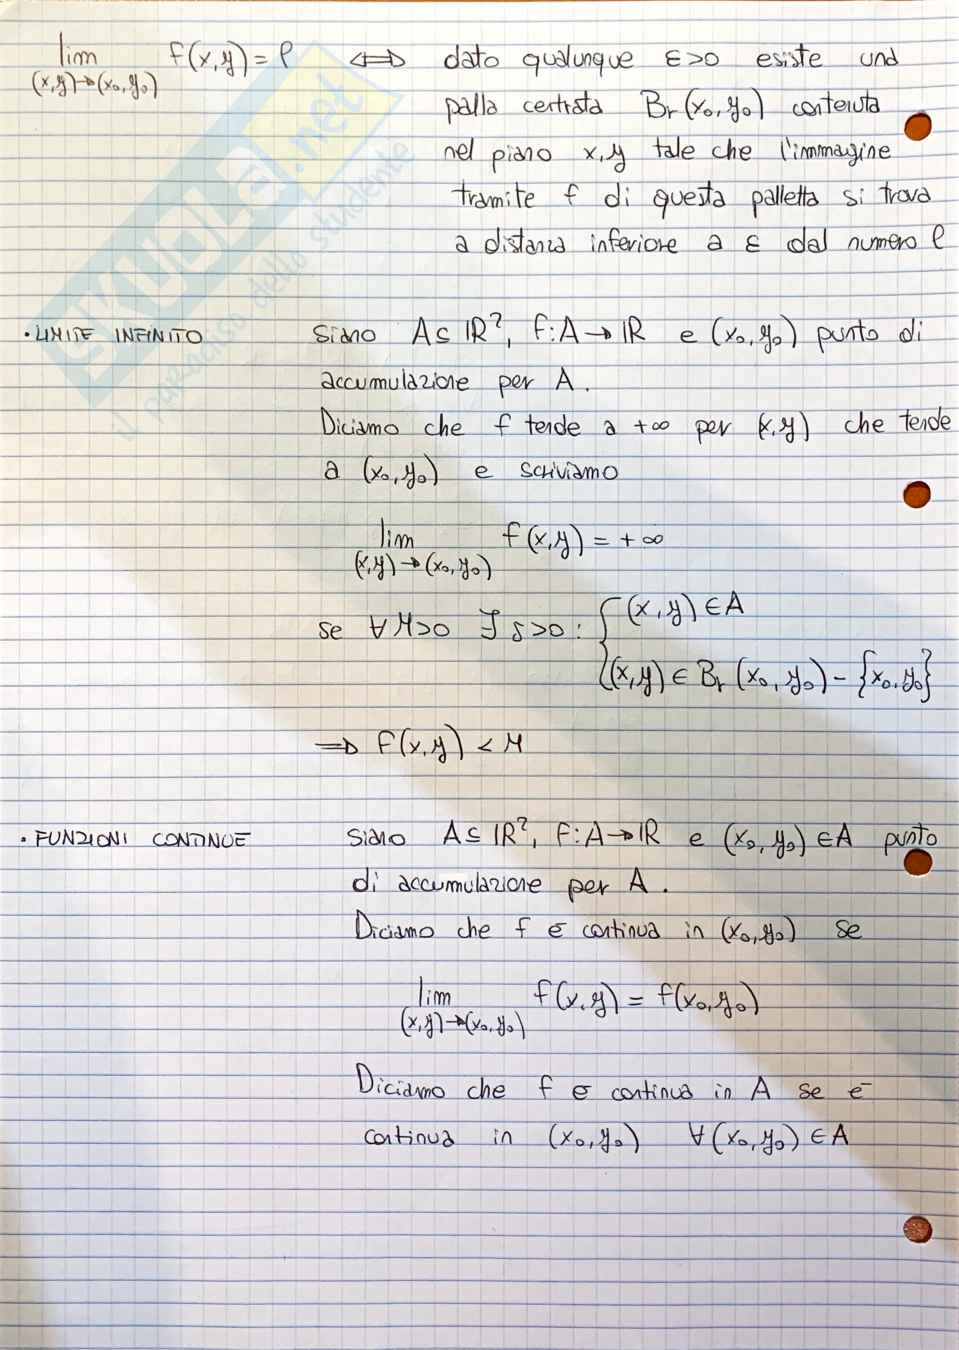 lim f(x,y) = l ⟺ dato qualunque ε>0 esiste una
(x,y)→(x₀,y₀)
palla centrata Br(x₀,y₀) contenuta
nel piano x,y tale che l'immagine
tramite f di questa palletta si trova
a distanza inferiore a ε dal numero l
SKUOLA.net
il paradiso dello studente
• LIMITE INFINITO Siano A⊆ℝ², f:A→ℝ e (x₀,y₀) punto di
accumulazione per A.
Diciamo che f tende a +∞ per (x,y) che tende
a (x₀,y₀) e scriviamo
lim f(x,y) = +∞
(x,y)→(x₀,y₀)
se ∀M>0 ∃ δ>0 : { (x,y) ∈ A
(x,y) ∈ Br (x₀,y₀) - {x₀,y₀}
⟹ f(x,y) < M
• FUNZIONI CONTINUE Siano A⊆ℝ², f:A→ℝ e (x₀,y₀) ∈A punto
di accumulazione per A.
Diciamo che f è continua in (x₀,y₀) se
lim f(x,y) = f(x₀,y₀)
(x,y)→(x₀,y₀)
Diciamo che f è continua in A se è
continua in (x₀,y₀) ∀(x₀,y₀) ∈A